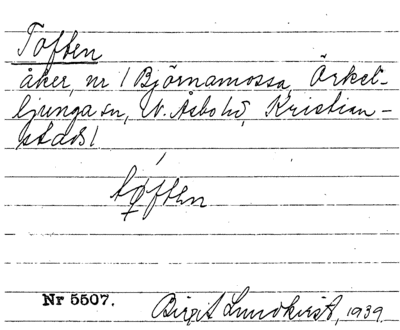 Toften
åker, nr 1 Björnamossa, Örkel-
ljunga sn, N. Åsbo hd, Kristian-
stads l
tǫften
Nr 5507.
Birgit Lundkvist, 1939